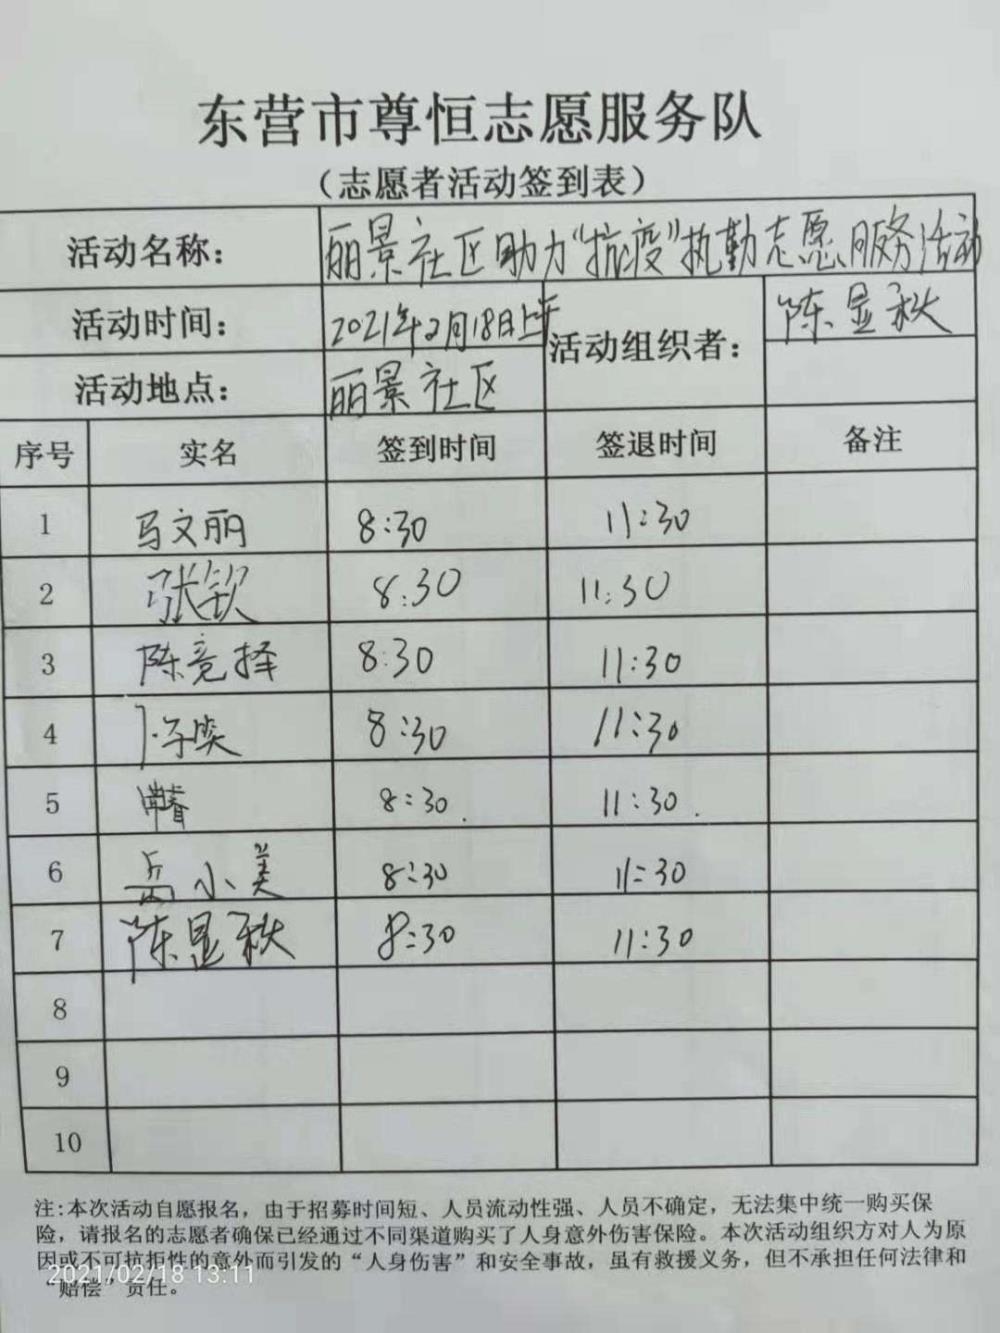 东营市尊恒志愿服务队
（志愿者活动签到表）
活动名称： 丽景社区助力“抗疫”执勤志愿服务活动
活动时间： 2021年2月18日上午 活动组织者： 陈显秋
活动地点： 丽景社区
序号 实名 签到时间 签退时间 备注
1 马文丽 8:30 11:30
2 张钦 8:30 11:30
3 陈竟择 8:30 11:30
4 8:30 11:30
5 8:30. 11:30.
6 岳小美 8:30 11:30
7 陈显秋 8:30 11:30
8
9
10
注:本次活动自愿报名，由于招募时间短、人员流动性强、人员不确定，无法集中统一购买保
险，请报名的志愿者确保已经通过不同渠道购买了人身意外伤害保险。本次活动组织方对人为原
因或不可抗拒性的意外而引发的“人身伤害”和安全事故，虽有救援义务，但不承担任何法律和
“赔偿”责任。
2021/02/18 13:11